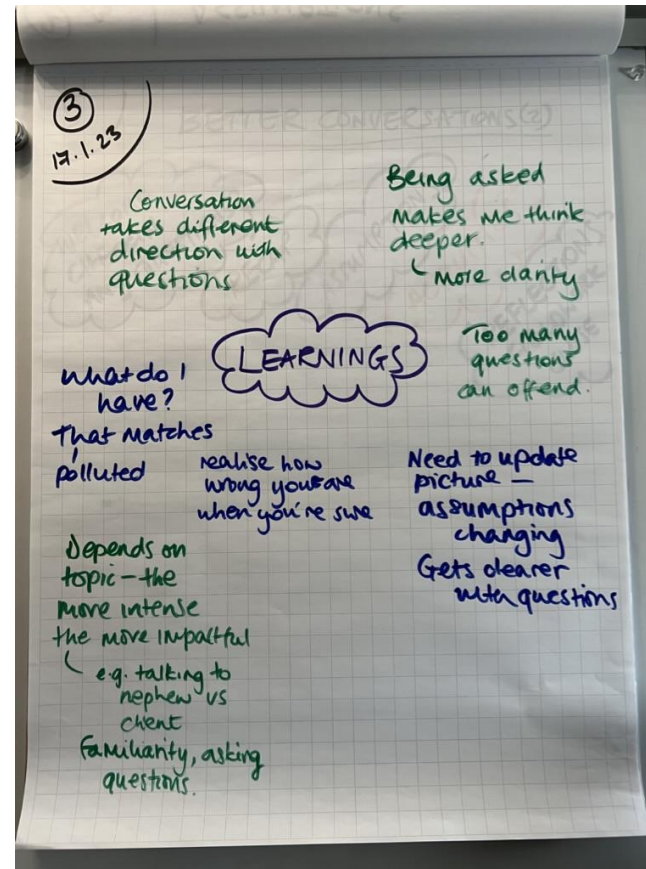 3
17.1.23
BETTER CONVERSATIONS(2)
Conversation
takes different
direction with
questions
Being asked
makes me think
deeper.
More clarity
Too many
questions
can offend.
LEARNINGS
What do I
have?
That matches
polluted
realise how
wrong you are
when you're sure
Need to update
picture —
assumptions
changing
Gets clearer
with questions
Depends on
topic – the
more intense
the more impactful
e.g. talking to
nephew vs
client
Familiarity, asking
questions.